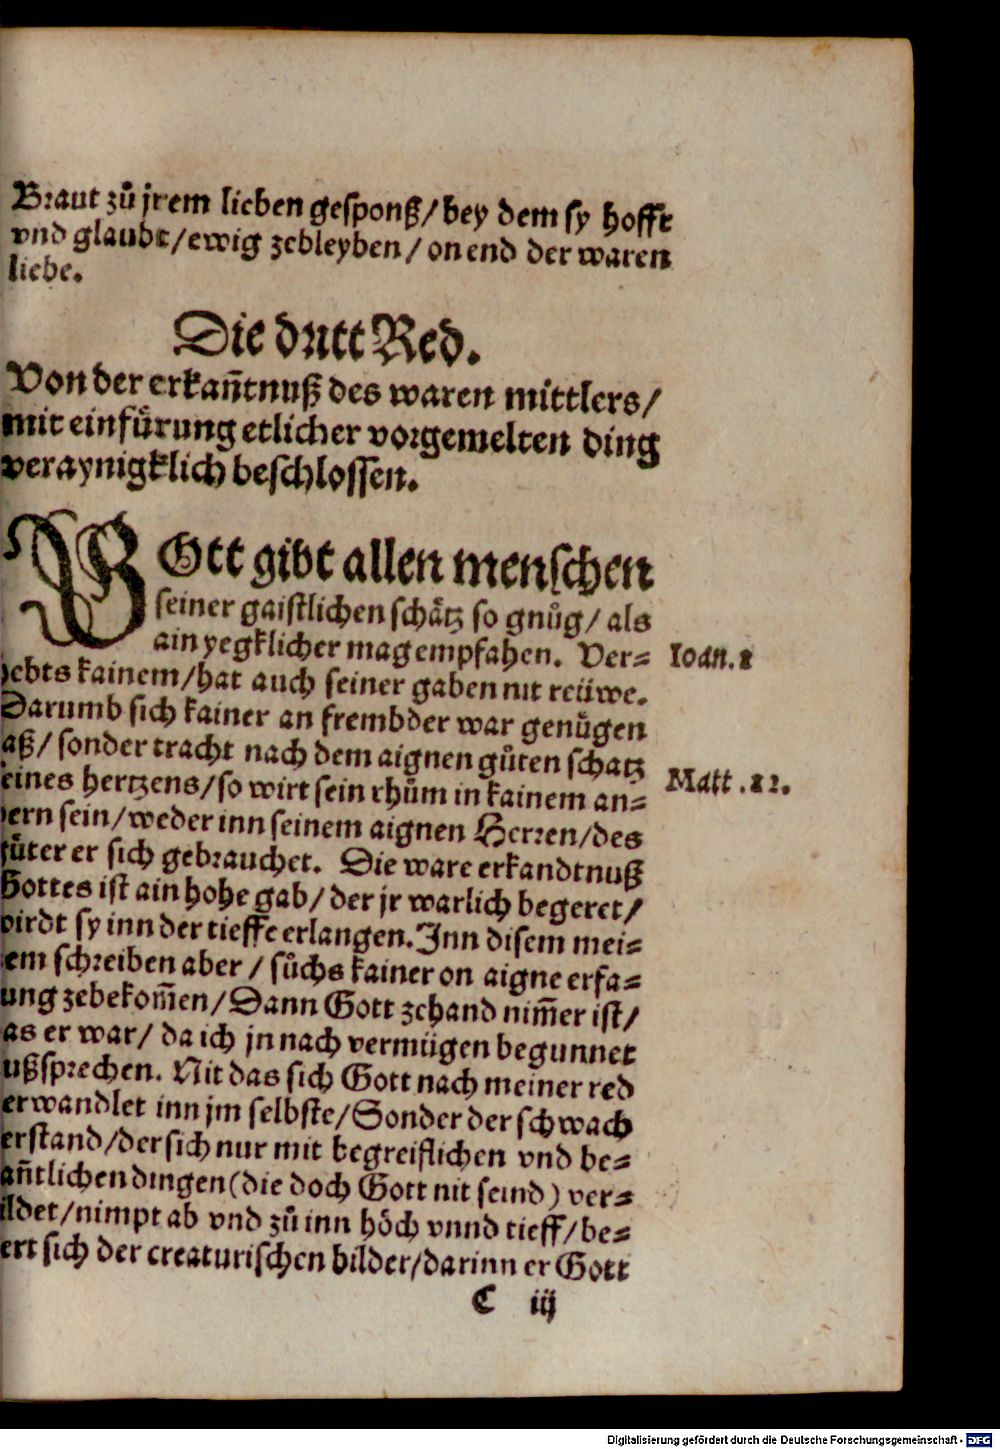 Braut zů jrem lieben gesponß/bey dem sy hofft
vnd glaubt/ewig zebleyben/on end der waren
liebe.
Die dritt Red.
Von der erkañtnuß des waren mittlers/
mit einfürung etlicher vorgemelten ding
veraynigklich beschlossen.
GOtt gibt allen menschen
seiner gaistlichen schätz so gnůg/als
ain yegklicher mag empfahen. Ver=
hebts kainem/hat auch seiner gaben nit reüwe.
Ioan.1
Darumb sich kainer an frembder war genůgen
laß/sonder tracht nach dem aignen gůten schatz
seines hertzens/so wirt sein rhům in kainem an=
Matt.12.
dern sein/weder inn seinem aignen Herren/des
güter er sich gebrauchet. Die ware erkandtnuß
Gottes ist ain hohe gab/der jr warlich begeret/
wirdt sy inn der tieffe erlangen. Inn disem mei=
nem schreiben aber/sůchs kainer on aigne erfa=
rung zebekom̃en/Dann Gott zehand nim̃er ist/
das er war/da ich jn nach vermügen begunnet
außsprechen. Nit das sich Gott nach meiner red
verwandlet inn jm selbste/Sonder der schwach
verstand/der sich nur mit begreiflichen vnd be=
kañtlichen dingen(die doch Gott nit seind)ver=
bildet/nimpt ab vnd zů inn höch vnnd tieff/be=
kert sich der creaturischen bilder/darinn er Gott
C iij
Digitalisierung gefördert durch die Deutsche Forschungsgemeinschaft - DFG